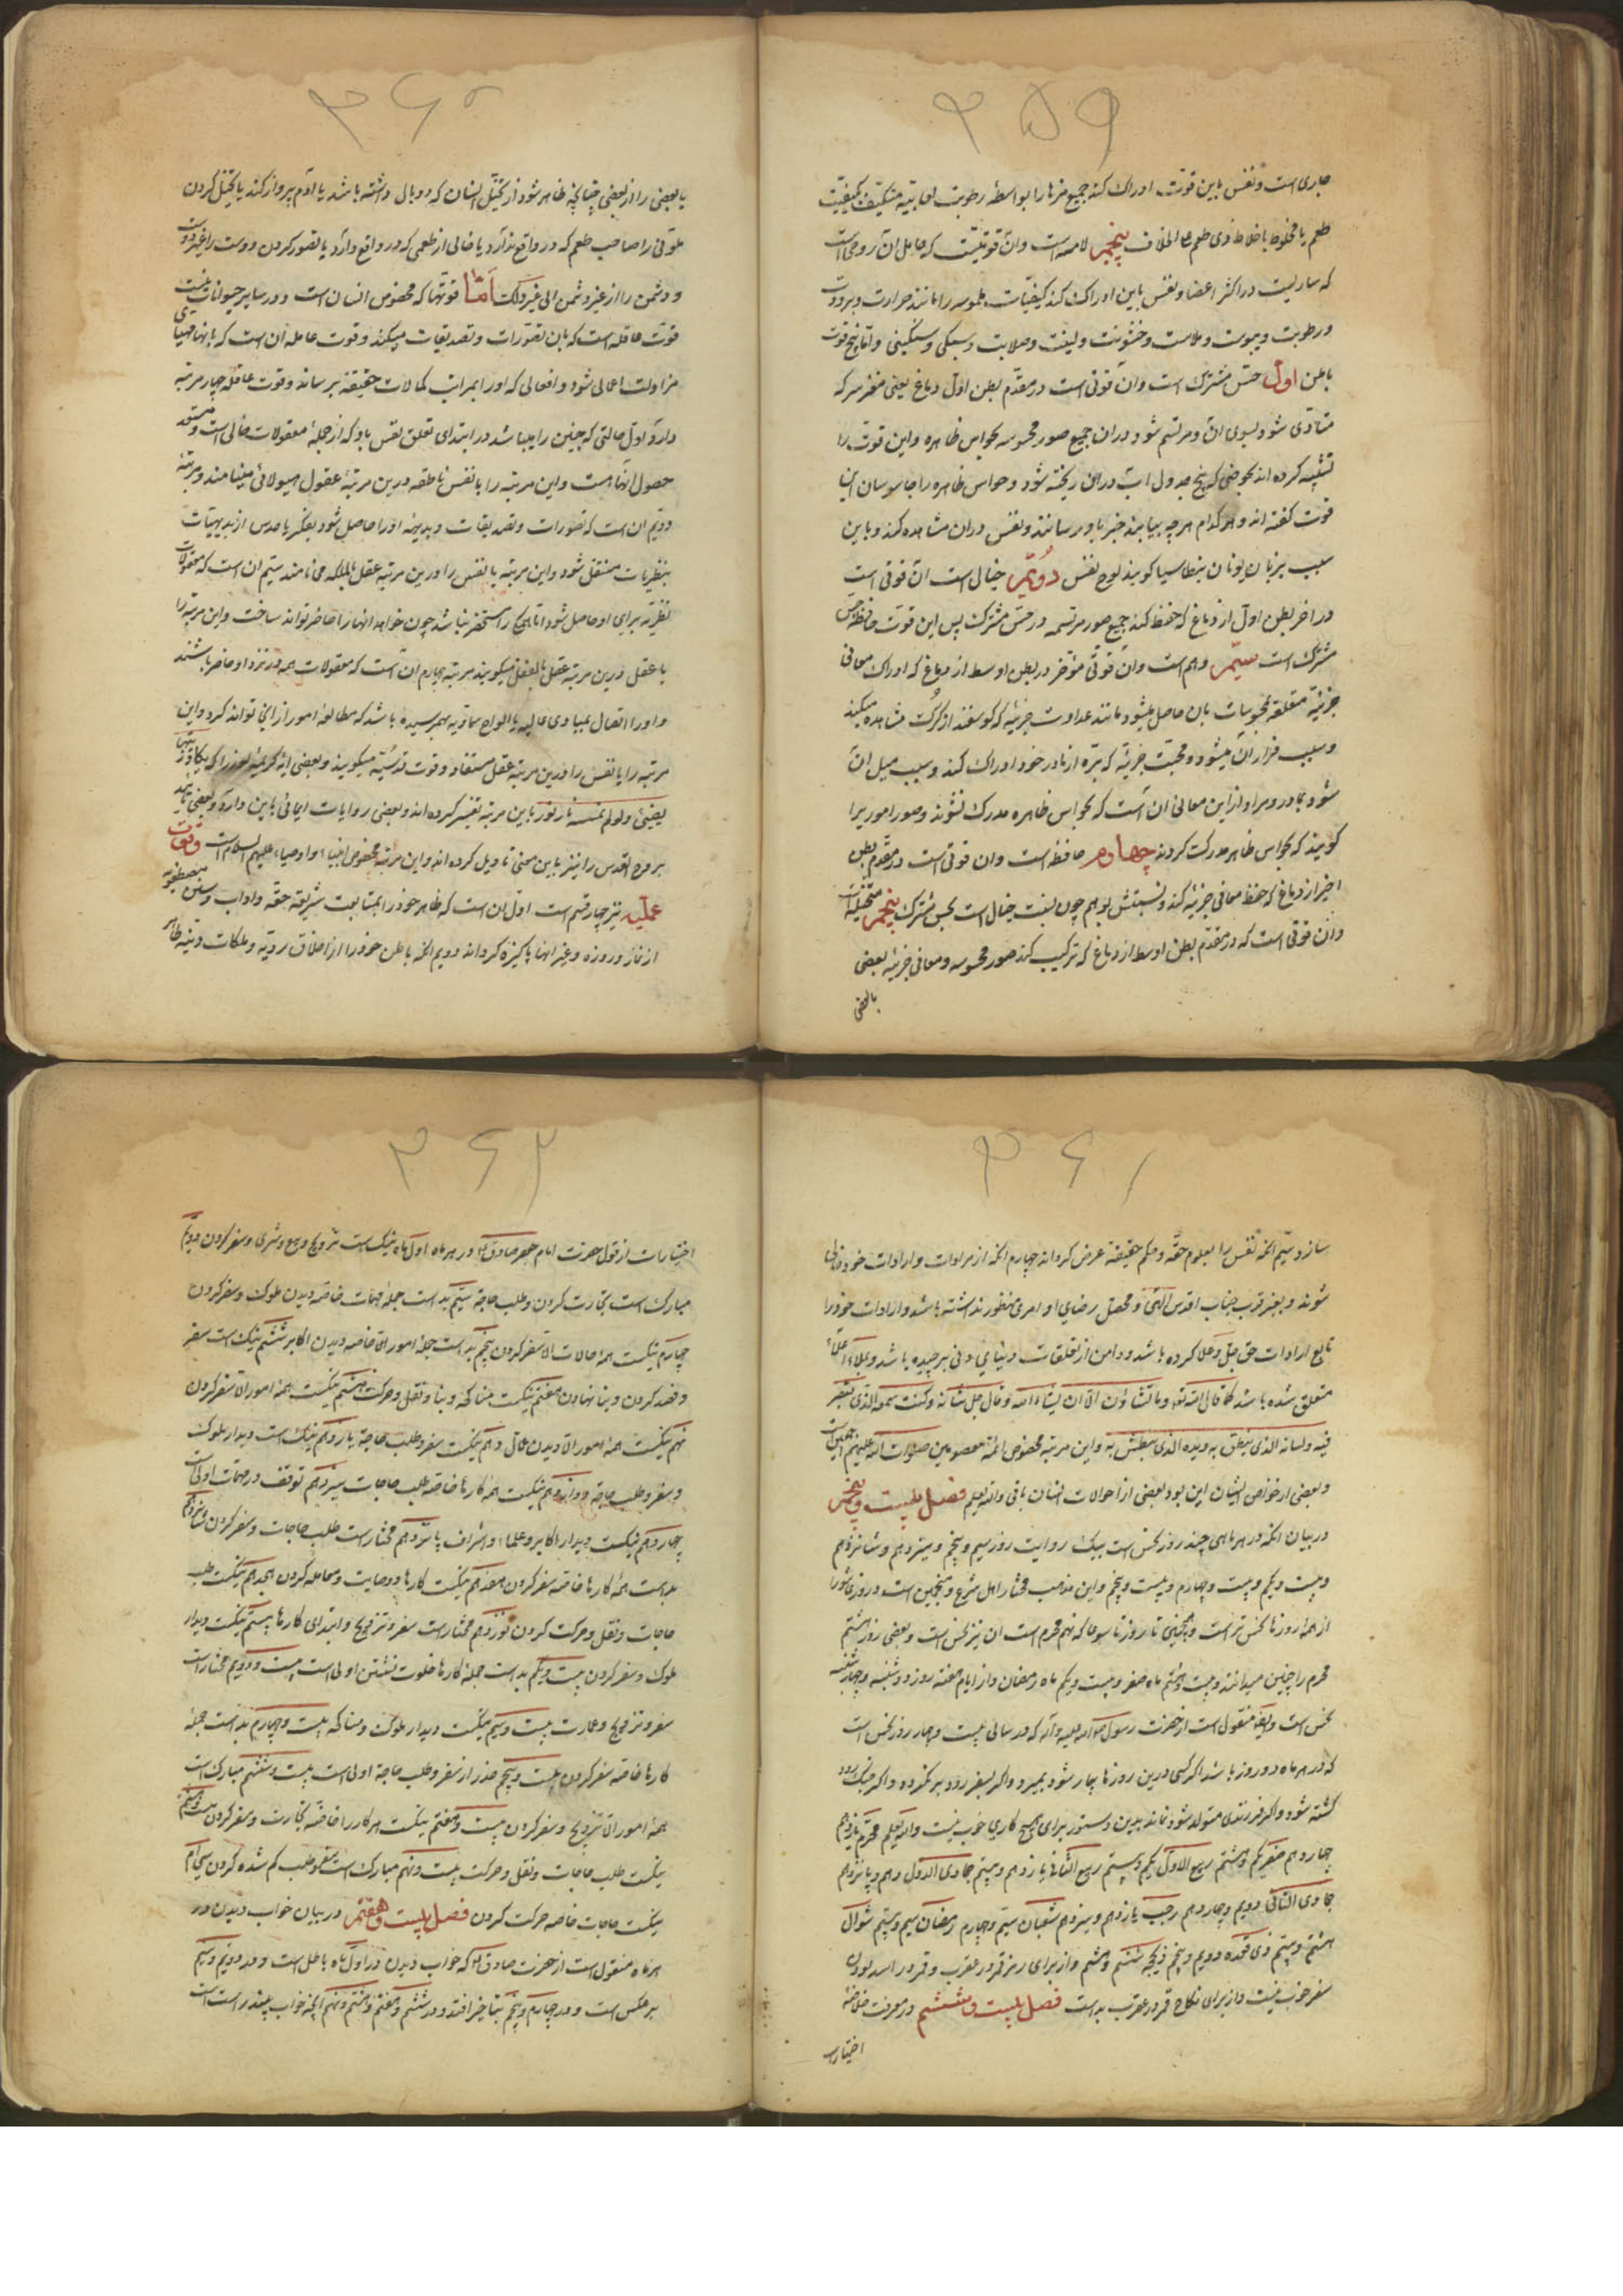 ۳۵۹
جاری است و نفس باین قوت ادراک کند جمیع مزها را بواسطهٔ رطوبت لعابیّه متکیّف بکیفیّت
طعم یا مخلوط باخلاط ذی طعم علی الخلاف پنجم لامسه است وآن قوتیست که حامل آن روحی است
که ساریست در اکثر اعضا و نفس باین ادراک کند کیفیّات ملموسه را مانند حرارت و برودت
و رطوبت و یبوست و ملاست و خشونت و لینت و صلابت و سبکی و سنگینی و امّا پنج قوت
باطن اول حسّ مشترک است وآن قوتی است در مقدّم بطن اوّل دماغ یعنی مغز سر که
متأدّی شود بسوی آن و مرتسم شود در آن جمیع صور محسوسه بحواس ظاهره و این قوت را
تشبیه کرده اند بحوضی که پنج جدول آب در آن ریخته شود و حواس ظاهره را جاسوسان این
قوت گفته اند و هر کدام هر چه بیابند خبر باو رسانند و نفس در آن مشاهده کند و باین
سبب بزبان یونان بنطاسیا گویند لوح نفس دویم خیال است آن قوتی است
در اخر بطن اول از دماغ که حفظ کند جمیع صور مرتسمه در حسّ مشترک پس این قوت حافظهٔ حسّ
مشترک است سیّم وهم است وآن قوتی مؤخر در بطن اوسط از دماغ که ادراک معانی
جزئیّه متعلقه بمحسوسات بان حاصل میشود مانند عداوت جزئیه که گوسفند از گرگ مشاهده میکند
و سبب فرار آن میشود و محبّت جزئیّه که بره از مادر خود ادراک کند و سبب میل آن
شود بمادر و مراد از این معانی آن است که بحواس ظاهره مدرک نشوند و صور امور یرا
گویند که بحواس ظاهره مدرک کردند چهارم حافظه است وان قوتی است در مقدّم بطن
اخیر از دماغ که حفظ معانی جزئیه کند و نسبتش بوهم چون نسبت خیال است بحسّ مشترک پنجم متخیّله است
وآن قوتی است که در مقدّم بطن اوسط از دماغ که ترکیب کند صور محسوسه و معانی جزئیه بعضی
بابعضی
۳۶۰
یا بعضی را از بعضی چنانچه ظاهر شود از تخیّل انسان که دو بال داشته باشد یا آدم پرواز کند یا تخیّل کردن
را صاحب طعم که در واقع ندارد یا خالی از طعمی که در واقع دارد یا تصور کردن دوست را غیر دوست
و دشمن را از غیر دشمن الی غیر ذلک امّا قوتها که مخصوص انسان است و در سایر حیوانات نیست
قوت عاقله است که بان تصوّرات و تصدیقات میکند و قوت عامله ان است که بانها مهیّای
مزاولت اعمالی شود و افعالی که او را بمراتب کمالات حقیقیّه برساند و قوت عاقله چهار مرتبه
دارد اول حالتی که جنین را میباشد در ابتدای تعلق نفس باو که از جملهٔ معقولات خالی است و مستعد
حصول آنها است و این مرتبه را یا نفس ناطقه درین مرتبهٔ عقول هیولائی مینامند و مرتبهٔ
دویم ان است که تصورات و تصدیقات بدیهیه او را حاصل شود بفکر یا حدس از بدیهیات
بنظریات منتقل شود و این مرتبه یا نفس را درین مرتبه عقل بالملکه می نامند سیّم ان است که معقولات
نظریّه برای او حاصل شود اما هیچ را مستحضر نباشد چون خواهد انها را حاضر تواند ساخت و این مرتبه را
یا عقل درین مرتبه عقل بالفعل میگویند مرتبه چهارم آن است که معقولات همه در نزد او حاضر باشند
و او را اتصال بمبادی عالیه یا الواح سماویّه بهم رسیده باشد که مطالعهٔ امور از انجا تواند کرد و این
مرتبه را یا نفس را درین مرتبه عقل مستفاد و قوت قدسیّه میگویند و بعضی ایهٔ کریمهٔ نور را که یکاد زیتها
یضیئ ولو لم تمسسه نار نور باین مرتبه تفسیر کرده اند و بعضی روایات ایمائی باین دارد و بعضی تایید
بروح القدس را نیز باین معنی تاویل کرده اند و این مرتبه مخصوص انبیاء و اوصیاء علیهم السلام است و قوت
عملیّه نیز چهار قسم است اول ان است که ظاهر خود را بمتابعت شریعت حقّه و اداب و سنن مصطفویّه
از نماز و روزه و غیر انها پاکیزه گرداند دویم انکه باطن خود را از اخلاق ردیّه و ملکات دنیّه طاهر
۳۶۱
سازد سیّم انکه نفس را بعلوم حقّه و حکم حقیقیه عرض گرداند چهارم انکه از مرادات و ارادات خود فانی
شوند و بغیر قرب جناب اقدس آلهی و محض رضای او امری منظور نداشته باشد و ارادات خود را
تابع ارادات حق جلّ و علا کرده باشد و دامن از تعلقات دنیای دنی برچیده باشد و بملاء اعلا
متعلق شده باشد کما قال الله تع و ما تشاؤن الّا ان یشاء الله و قال جل شانه و کنت سمعه الذی
فیه ولسانه الذی ینطق به و یده الذی یبطش به و این مرتبه مخصوص ائمّه معصومین صلوات الله علیهم اجمعین است
و بعضی از خواص ایشان این بود بعضی از احوالات انسان باقی والله یعلم فصل بیست و پنجم
در بیان آنکه در هر ماهی چند روز نحس است بیک روایت روز سیم و پنجم و سیزدهم و شانزدهم
و بیست و یکم و بیست و چهارم و بیست و پنجم و این مذهب مختار اهل شرع و منجّمین است و روز عاشورا
از همهٔ روزها نحس تر است و همچنین تا روز تاسوعا که نهم محرم است ان نیز نحس است و بعضی روز هشتم
محرم را چنین میدانند و بیست و هشتم ماه صفر و بیست و یکم ماه رمضان و از ایام هفته روز دو شنبه و چهارشنبه
نحس است و ایضا منقول است از حضرت رسول صلی الله علیه و آله که در سالی بیست و چهار روز نحس است
که در هر ماه دو روز باشد اگر کسی درین روزها بیمار شود بمیرد و اگر بسفر رود بر نگردد و اگر جنگ رود
کشته شود و اگر فرزندی متولد شود نماند بدین دستور برای هیچ کاری خوب نیست والله یعلم محرّم یازدهم
چهاردهم صفر یکم و هشتم ربیع الاول یکم و بیستم ربیع الثانی یازدهم و بیستم جمادی الاول دهم و پانزدهم
جمادی الثانی دویم و چهاردهم رجب یازدهم و سیزدهم شعبان سیّم و چهارم رمضان سیم و بیستم شوال
هشتم و بیستم ذی قعده دویم و پنجم ذیحجه ششم و هشتم و از برای رمز قمر در عقرب و قمر در اسد بودن
سفر خوب نیست و از برای نکاح قمر در عقرب بد است فصل بیست و ششم در معرفت خلاصهٔ
اختیارات
۳۶۲
اختیارات از قول حضرت امام جعفر صادق در هر ماه اول ماه نیک است تزویج و بیع و شری و سفر کردن دویّم
مبارک است تجارت کردن و طلب حاجة سیّم بد است جملهٔ مهمات خاصّه دیدن ملوک و سفر کردن
چهارم نیکست همهٔ حالات الّا سفر کردن پنجم بد است جملهٔ امورات خاصه دیدن اکابر ششم نیکست سفر
و قصد کردن و بنا نهادن هفتم نیکست مناکحه و بنا و نقل و حرکت هشتم نیکست همهٔ امور الا سفر کردن
نهم نیکست همهٔ امور الا دیدن عمّال دهم نیکست سفر و طلب حاجة یازدهم نیک است دیدار ملوک
و سفر و طلب حاجة دوازدهم نیکست همه کارها خاصّه طلب حاجات سیزدهم توقف در مهمات اولی است
چهاردهم نیکست دیدار اکابر و علماء و اشراف پانزدهم مختار است طلب حاجات و سفر کردن شانزدهم
بد است همهٔ کارها خاصّه سفر کردن هفدهم نیکست کارها و وصایت و معامله کردن هجدهم نیکست طلب
حاجات و نقل و حرکت کردن نوزدهم مختار است سفر و تزویج و ابتدای کارها بیستم نیکست دیدار
ملوک و سفر کردن بیست و یکم بد است جملهٔ کارها خلوت نشستن اولی است بیست و دویم مختار است
سفر و تزویج و عمارت بیست و سیم نیکست دیدار ملوک و مناکحه بیست و چهارم بد است جملهٔ
کارها خاصه سفر کردن بیست و پنجم حذر از سفر و طلب حاجة اولی است بیست و ششم مبارک است
همهٔ امور الا تزویج و سفر کردن بیست و هفتم نیکست هر کار را خاصّه تجارت و سفر کردن بیست و هشتم
نیکست طلب حاجات و نقل و حرکت بیست و نهم مبارک است سفر و طلب گم شده کردن سی ام
نیکست حاجات خاصه حرکت کردن فصل بیست و هفتم در بیان خواب دیدن در
هر ماه منقول است از حضرت صادق که خواب دیدن در اول ماه باطل است و در دویم و سیّم
برعکس است و در چهارم و پنجم بتاخیر افتد و در ششم و هفتم و هشتم و نهم آنچه خواب بیند راست است